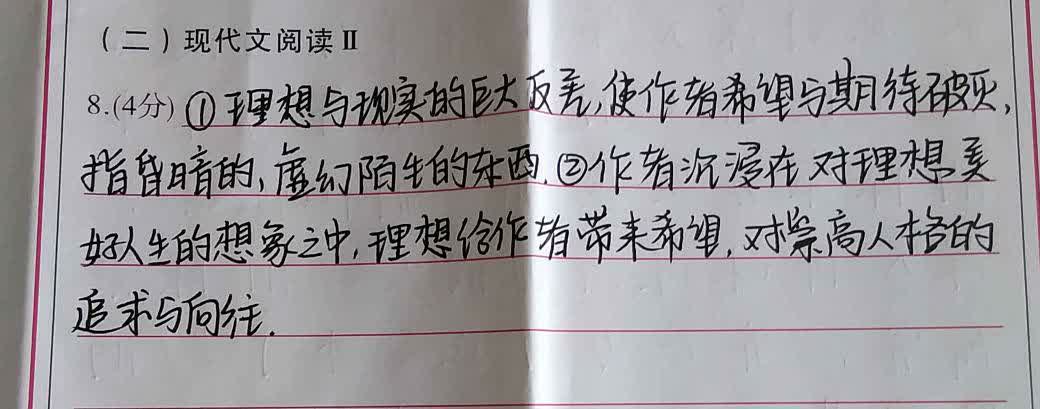 （二）现代文阅读Ⅱ
8.(4分)①理想与现实的巨大反差,使作者希望与期待破灭,
指昏暗的,虚幻陌生的东西.②作者沉浸在对理想美
好人生的想象之中,理想给作者带来希望,对崇高人格的
追求与向往.